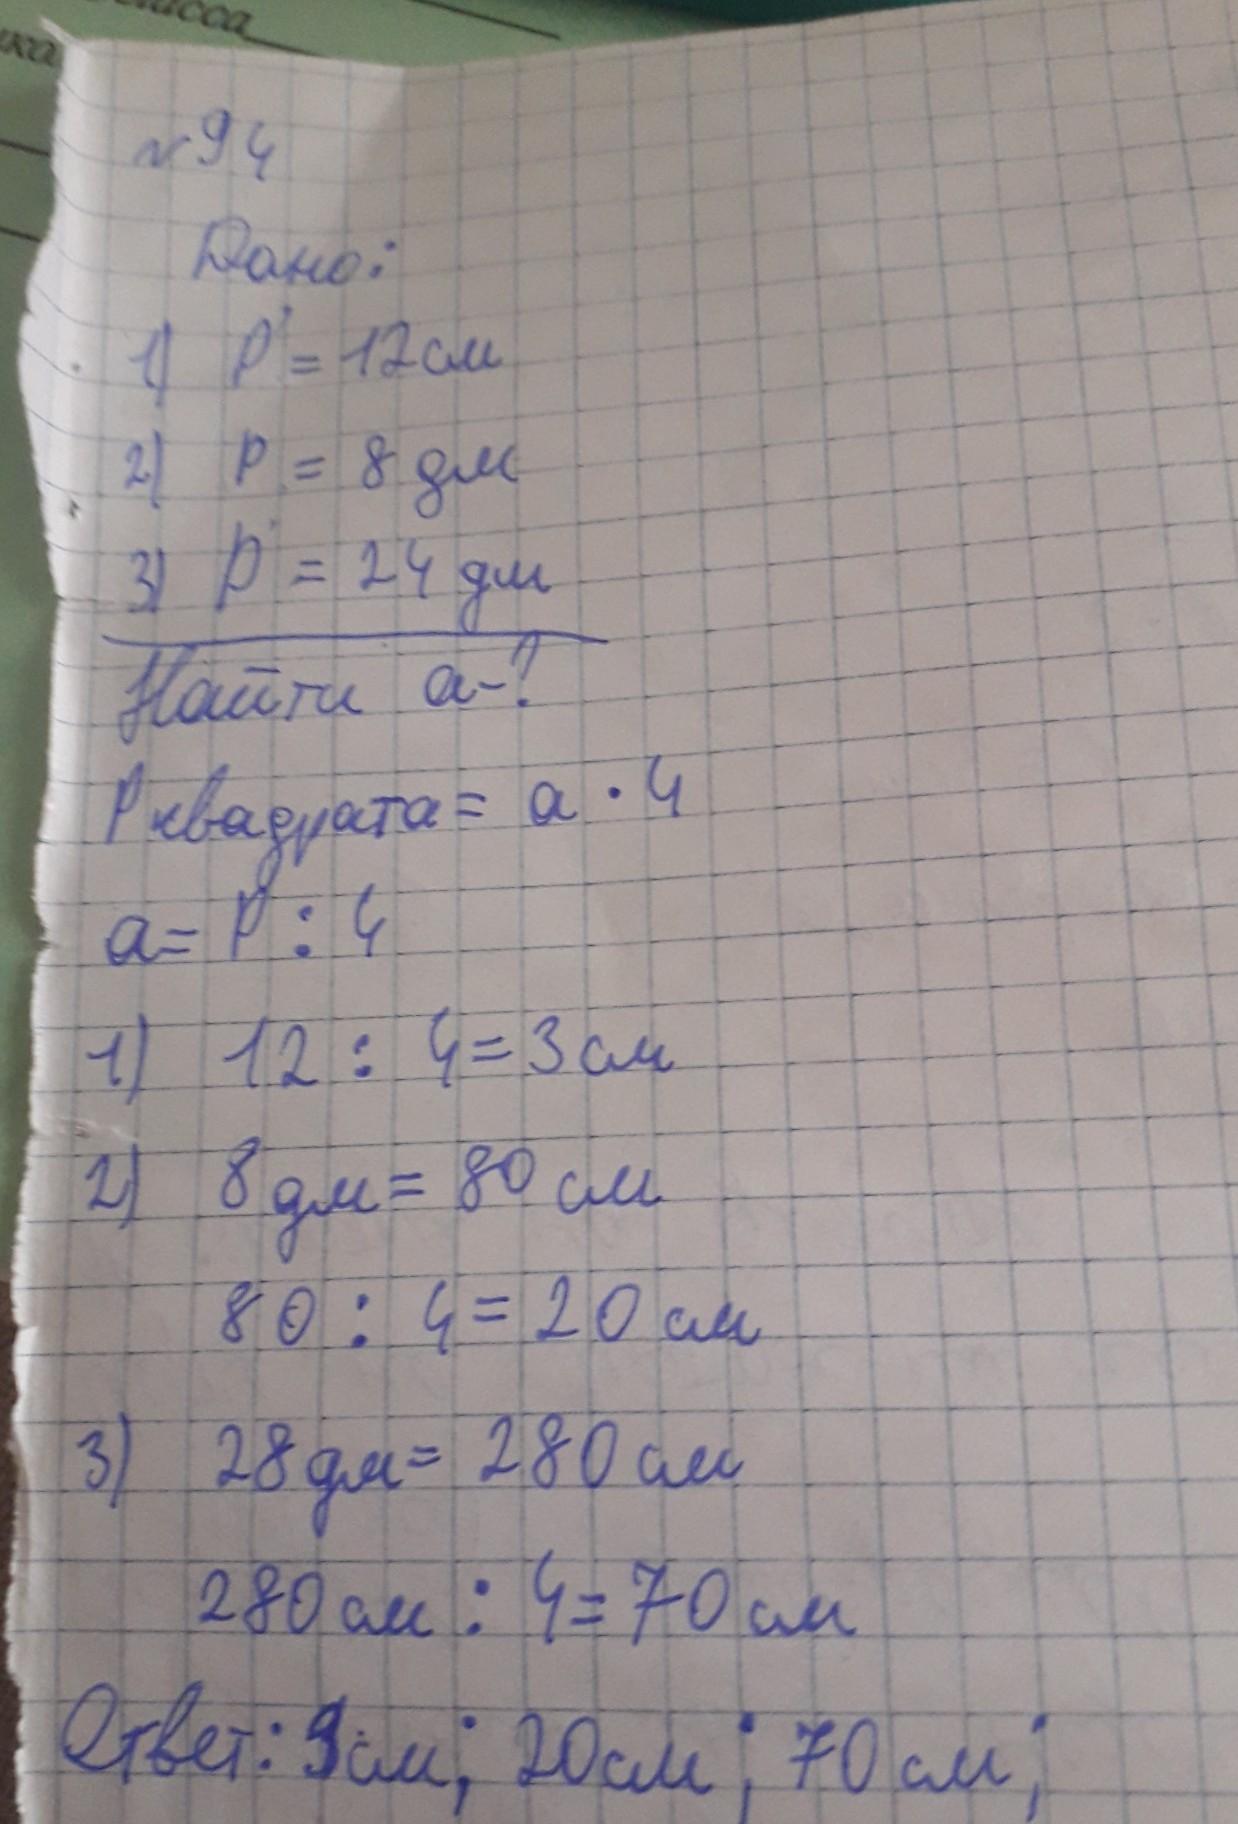 класса
ика
№94
Дано:
1) P = 12 см
2) P = 8 дм
3) P = 24 дм
Найти a-?
P квадрата = a · 4
a = P : 4
1) 12 : 4 = 3 см
2) 8 дм = 80 см
80 : 4 = 20 см
3) 28 дм = 280 см
280 см : 4 = 70 см
Ответ: 3 см; 20 см; 70 см;